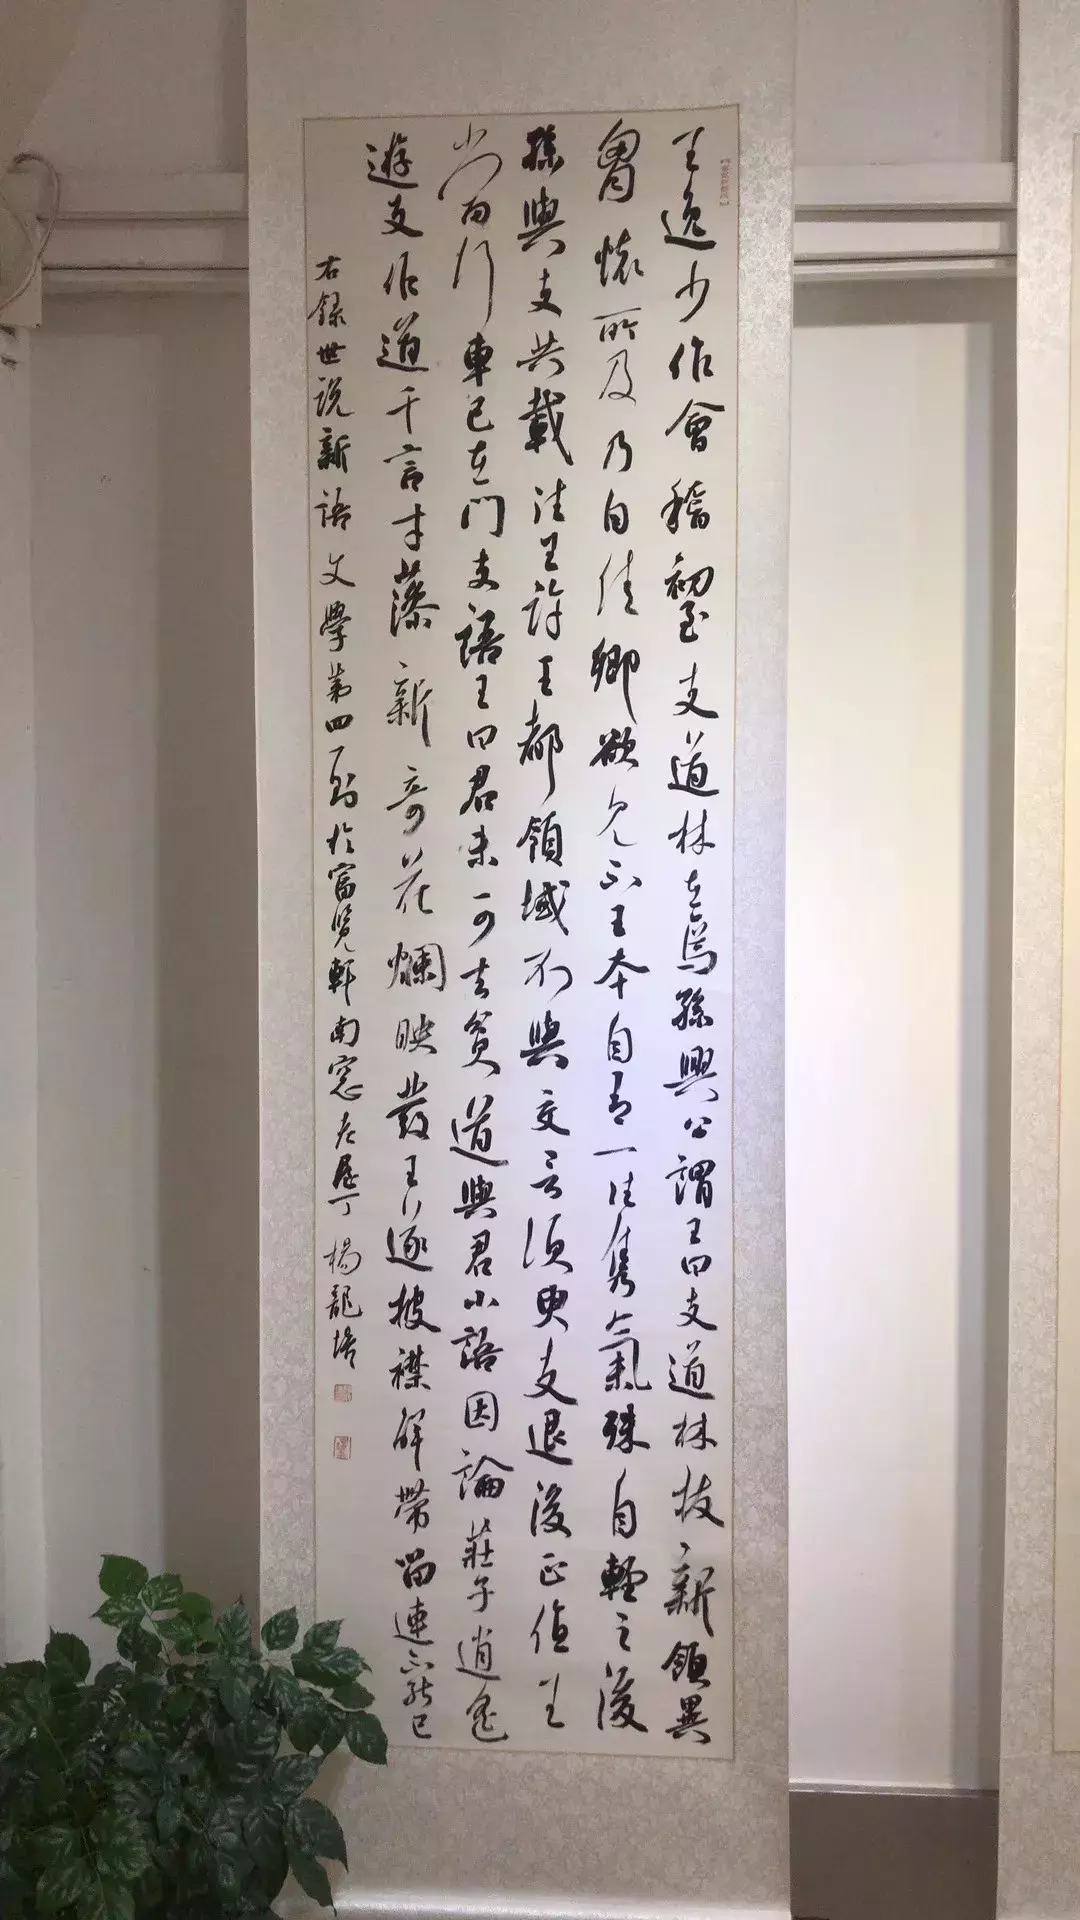 王逸少作會稽初至支道林在焉孫興公謂王曰支道林拔新領異
胷懷所及乃自佳卿欲見不王本自有一往雋氣殊自輕之後
孫與支共載往王許王都領域不與交言須臾支退後正值王
當行車已在門支語王曰君未可去貧道與君小語因論莊子逍遙
遊支作道千言才藻新奇花爛映發王遂披襟解帶留連不能已
右錄世說新語文學第四 於富覽軒南窓 楊龍